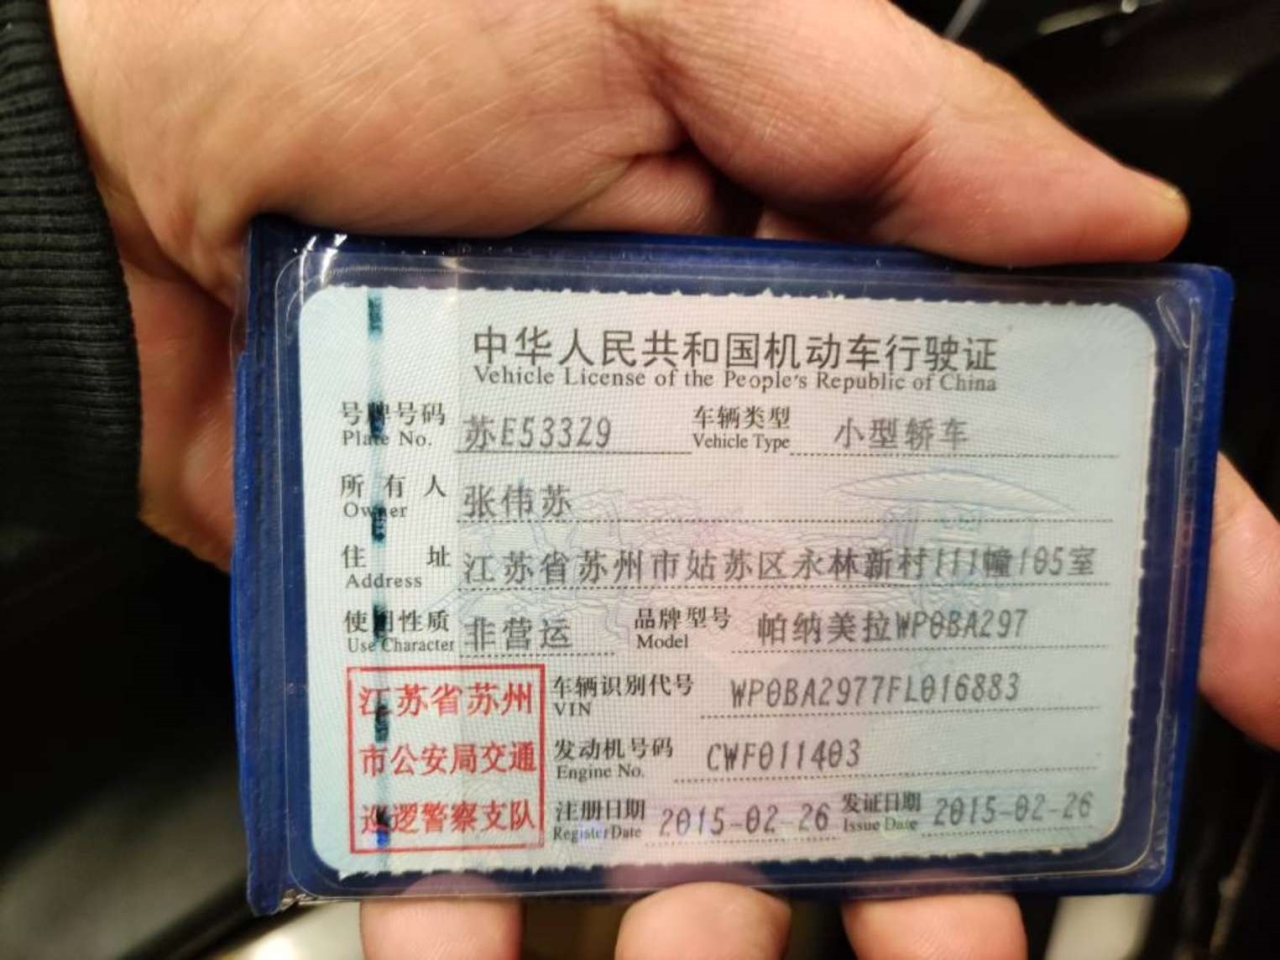 中华人民共和国机动车行驶证
Vehicle License of the People's Republic of China
号牌号码 苏E533Z9 车辆类型 小型轿车
Plate No. Vehicle Type
所有人 张伟苏
Owner
住址 江苏省苏州市姑苏区永林新村111幢105室
Address
使用性质 非营运 品牌型号 帕纳美拉WP0BA297
Use Character Model
江苏省苏州
市公安局交通
巡逻警察支队
车辆识别代号 WP0BA2977FL016883
VIN
发动机号码 CWF011403
Engine No.
注册日期 2015-02-26 发证日期 2015-02-26
Register Date Issue Date